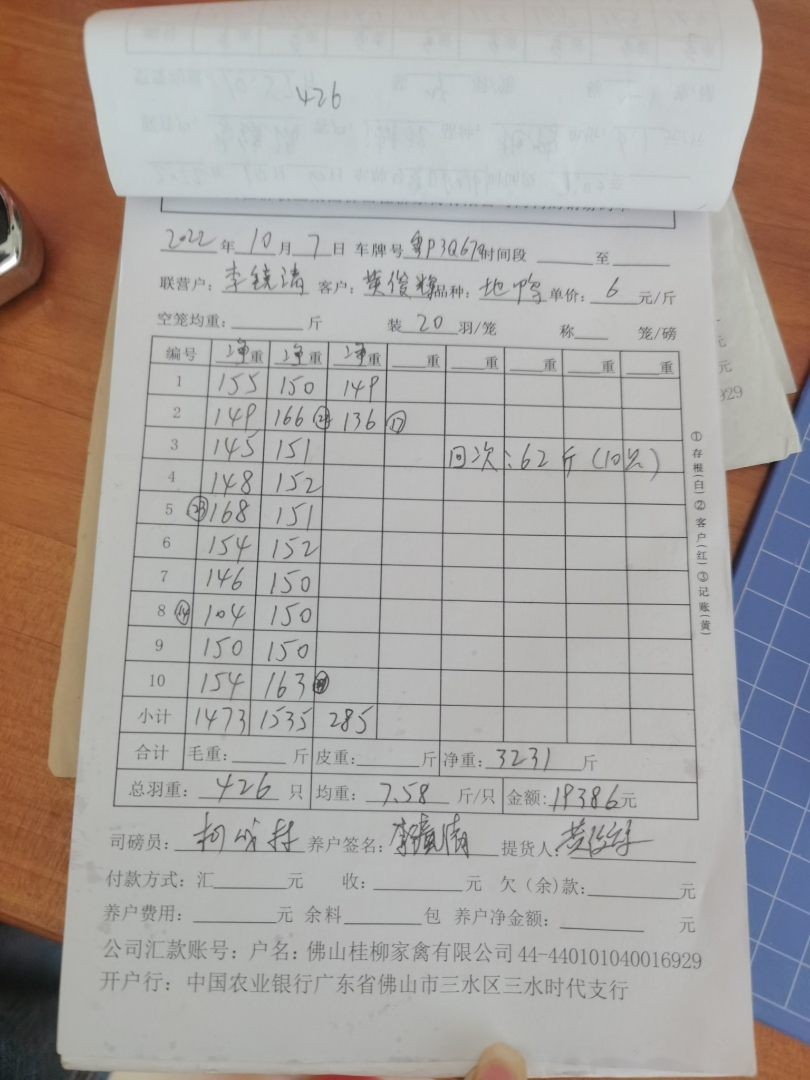 426
2022年10月7日 车牌号粤P3Q679时间段 至
联营户：李镜清 客户：黄俊辉品种：地鸭单价：6元/斤
空笼均重： 斤 装20羽/笼 称 笼/磅
编号 净重 净重 净重 重 重 重 重 重
1 155 150 149
2 149 166 136 ⑰
3 145 151 回次：62斤(10只)
4 148 152
5 ㉓ 168 151
6 154 152
7 146 150
8 ⑭ 104 150
9 150 150
10 154 163
小计 1473 1535 285
合计 毛重： 斤 皮重： 斤 净重：3231斤
总羽重：426只 均重：7.58斤/只 金额：19386元
司磅员： 养户签名： 提货人：
付款方式：汇 元 收： 元 欠(余)款： 元
养户费用： 元 余料 包 养户净金额： 元
公司汇款账号：户名：佛山桂柳家禽有限公司44-440101040016929
开户行：中国农业银行广东省佛山市三水区三水时代支行
①存根(白)②客户(红)③记账(黄)
元
元
929